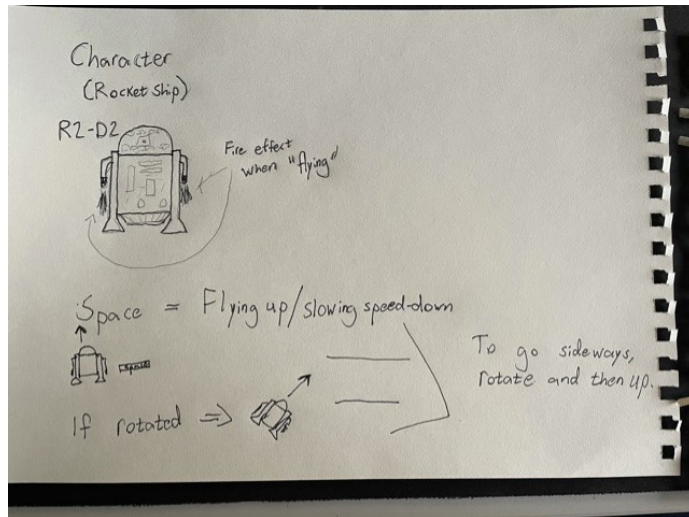 Character
(Rocket Ship)
R2-D2
Fire effect
when "flying"
Space = Flying up/slowing speed-down
space
To go sideways,
rotate and then up.
If rotated ⇒